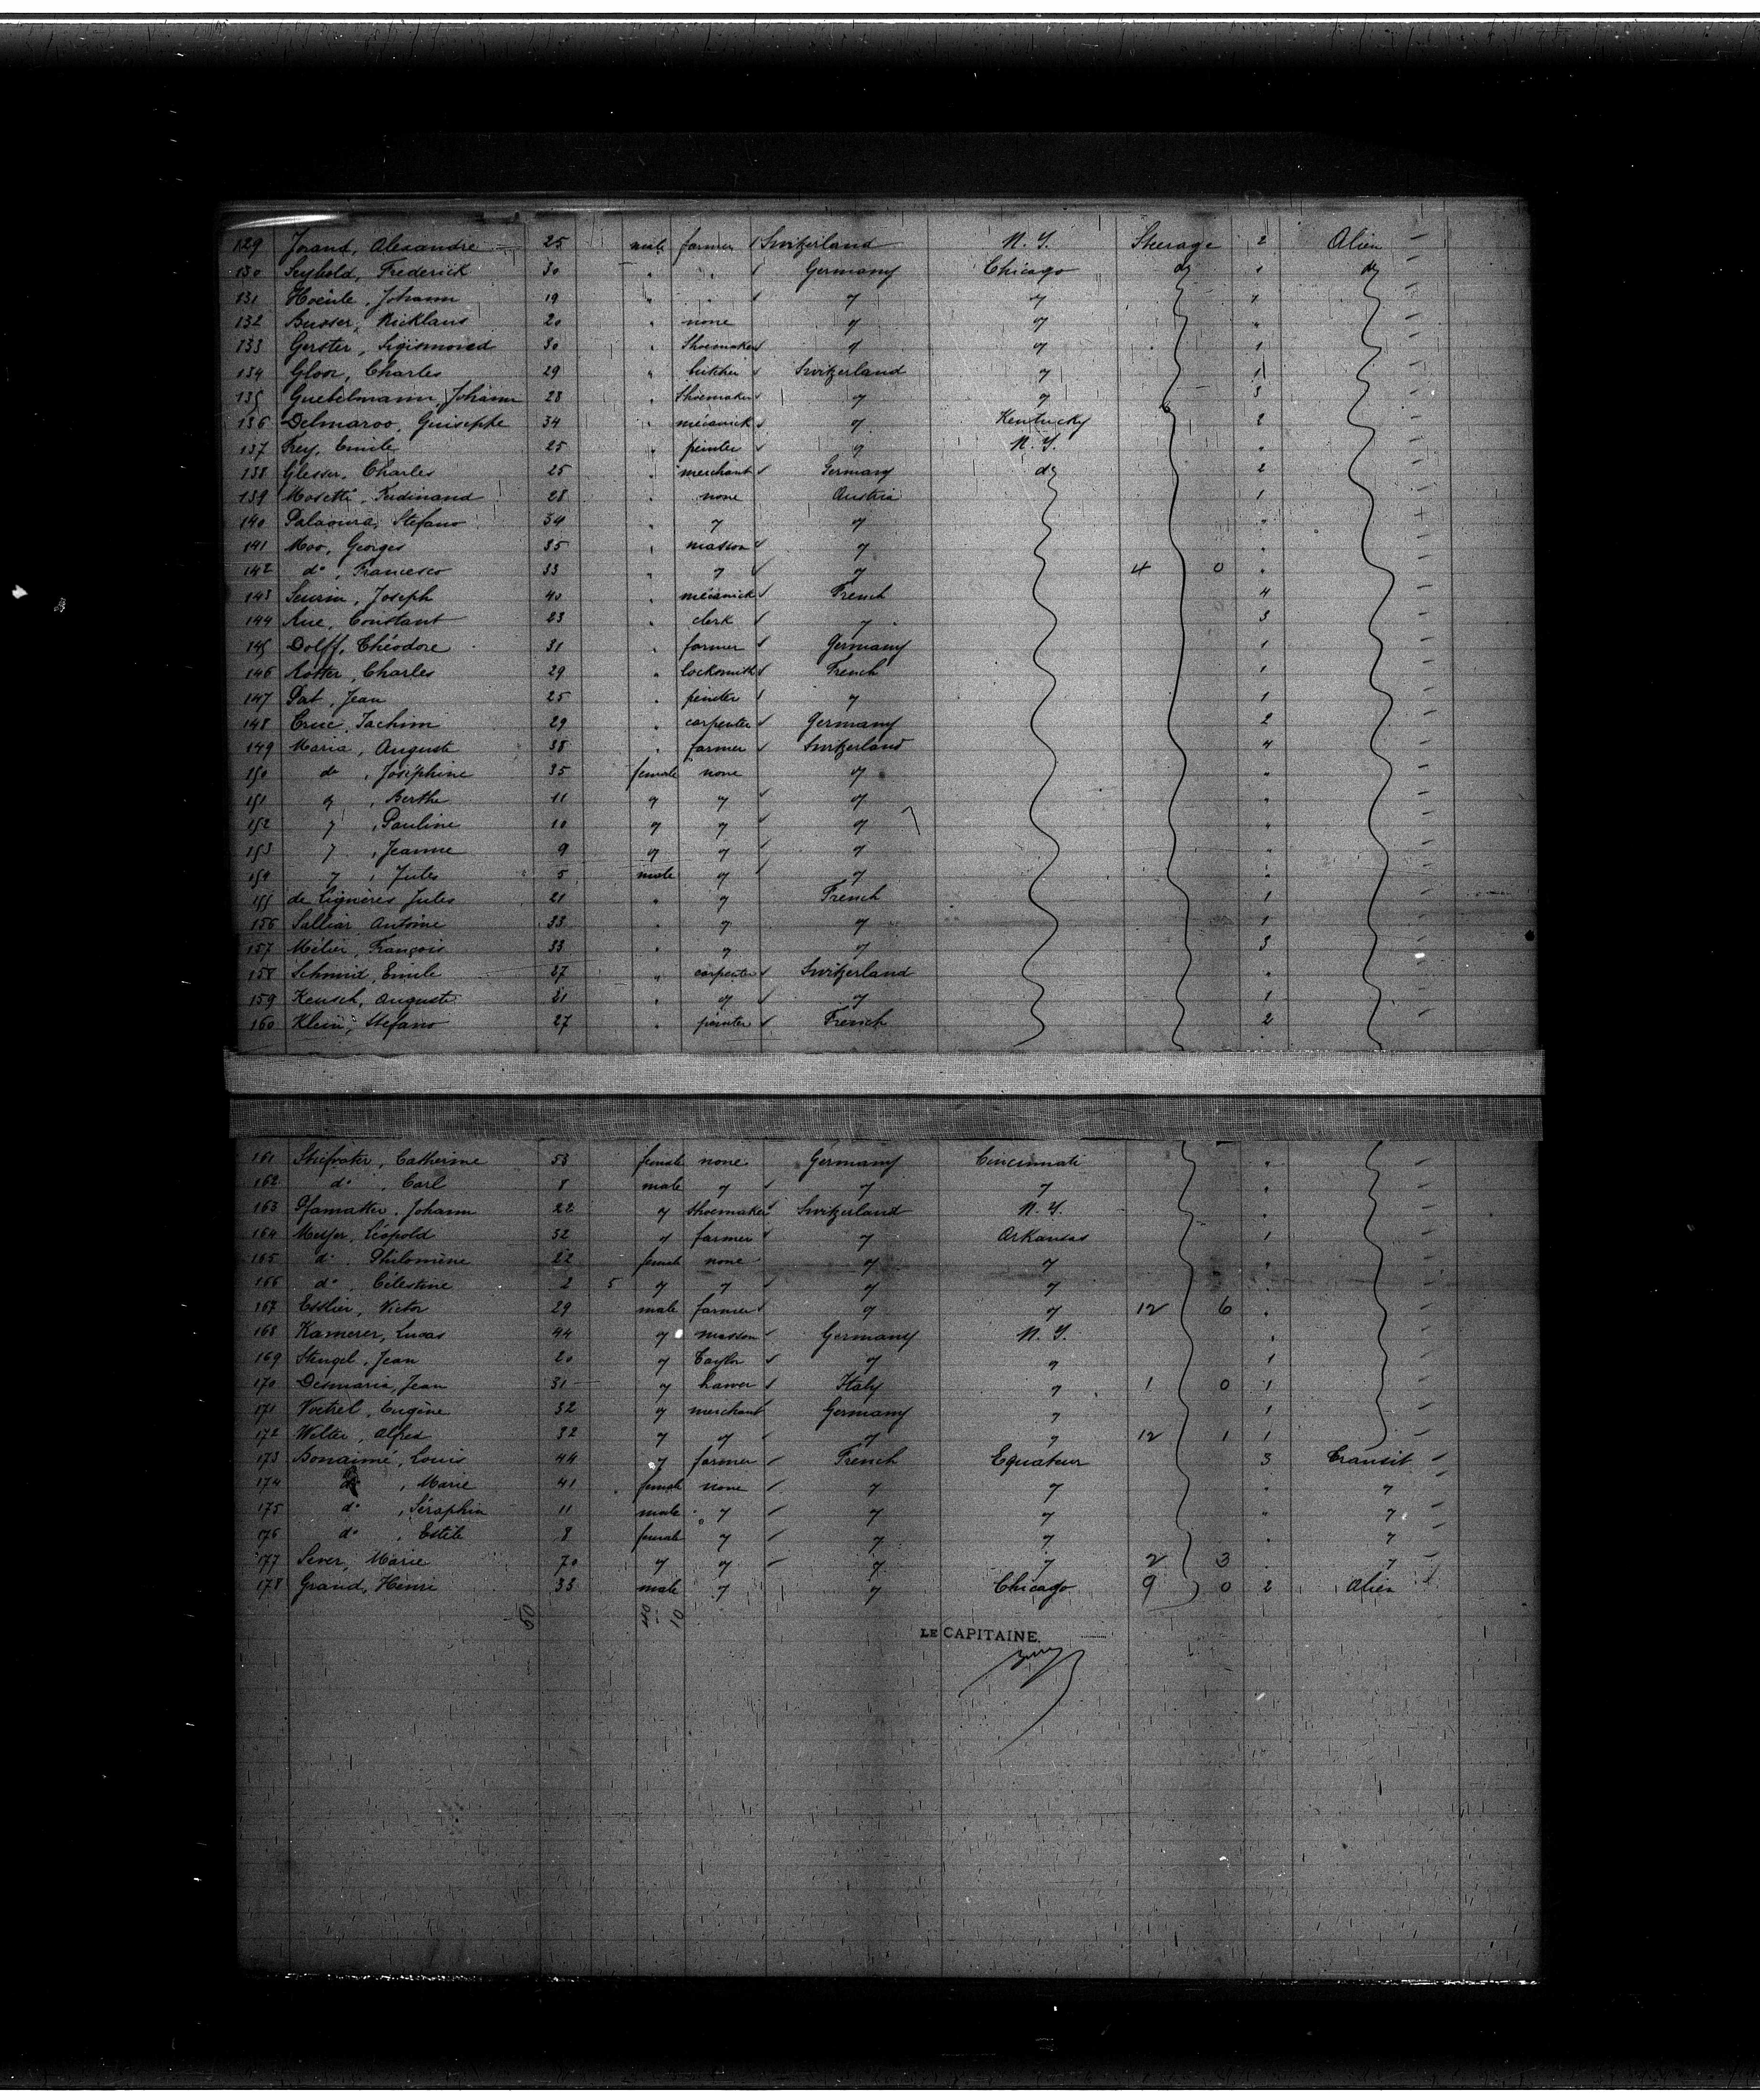 129 Jorand, Alexandre 25 male farmer Switzerland N. Y. Sterage 2 Alien
130 Seybold, Frederick 30 " " Germany Chicago dy 1 dy
131 Hoeinle, Johann 19 " " y y "
132 Busser, Nicklaus 20 " none y y "
133 Gerster, Sigismond 30 " Shoemaker y y 1
134 Gloor, Charles 29 " butcher Switzerland y 1
135 Guebelmann, Johann 28 " Shoemaker y y 3
136 Delmaroo, Guisephe 34 " mécanick y Kentucky 2
137 Frey, Emile 25 " peinter y N. Y. "
138 Glesser, Charles 25 " merchant Germany dy 2
139 Mosetti, Ferdinand 28 " none Austria 1
140 Palaoura, Stefano 34 " y y "
141 Moo, Georges 35 " masson y "
142 do, Francesco 33 " y y 4 0 "
143 Seurin, Joseph 40 " mécanick French 4
144 Rue, Constant 23 " clerk y 3
145 Dolff, Théodore 31 " farmer Germany 1
146 Rotter, Charles 29 " locksmith French 1
147 Pat, Jean 25 " peinter y 1
148 Cruc, Jachim 29 " carpenter Germany 2
149 Maria, Auguste 38 " farmer Switzerland 4
150 do, Joséphine 35 female none y "
151 y, Berthe 11 y y y "
152 y, Pauline 10 y y y "
153 y, Jeanne 9 y y y "
154 y, Jules 5 male y y "
155 de Lignières Jules 21 " y French 1
156 Salliar Antoine 33 " y y 1
157 Milier, François 33 " y y 3
158 Schmid, Emile 27 " carpenter Switzerland "
159 Keusch, Auguste 21 " y y 1
160 Klein, Stefano 27 " painter French 2
161 Stiefvater, Catherine 53 female none Germany Cincinnati "
162 do, Carl 8 male y y y "
163 Pfamatter, Johann 22 y Shoemaker Switzerland N. Y. "
164 Meyer, Léopold 32 y farmer y Arkansas 1
165 do, Philomène 22 female none y y "
166 do, Célestine 2 5 y y y y "
167 Esslier, Victor 29 male farmer y y 12 6 "
168 Kamerer, Lucas 44 y masson Germany N. Y. "
169 Stengel, Jean 20 y Taylor y y 1
170 Desmaria, Jean 31 y hawer Italy y 1 0 1
171 Voetrel, Eugène 32 y merchant Germany y 1
172 Welter, Alfred 32 y y y y 12 1 1
173 Bonaimé, Louis 44 y farmer French Equateur 3 Transit
174 do, Marie 41 female none y y " y
175 do, Séraphin 11 male y y y " y
176 do, Estèle 8 female y y y " y
177 Sever, Marie 70 y y y y 2 3 " y
178 Grand, Henri 33 male y y Chicago 9 0 2 Alien
50 40 10
LE CAPITAINE,